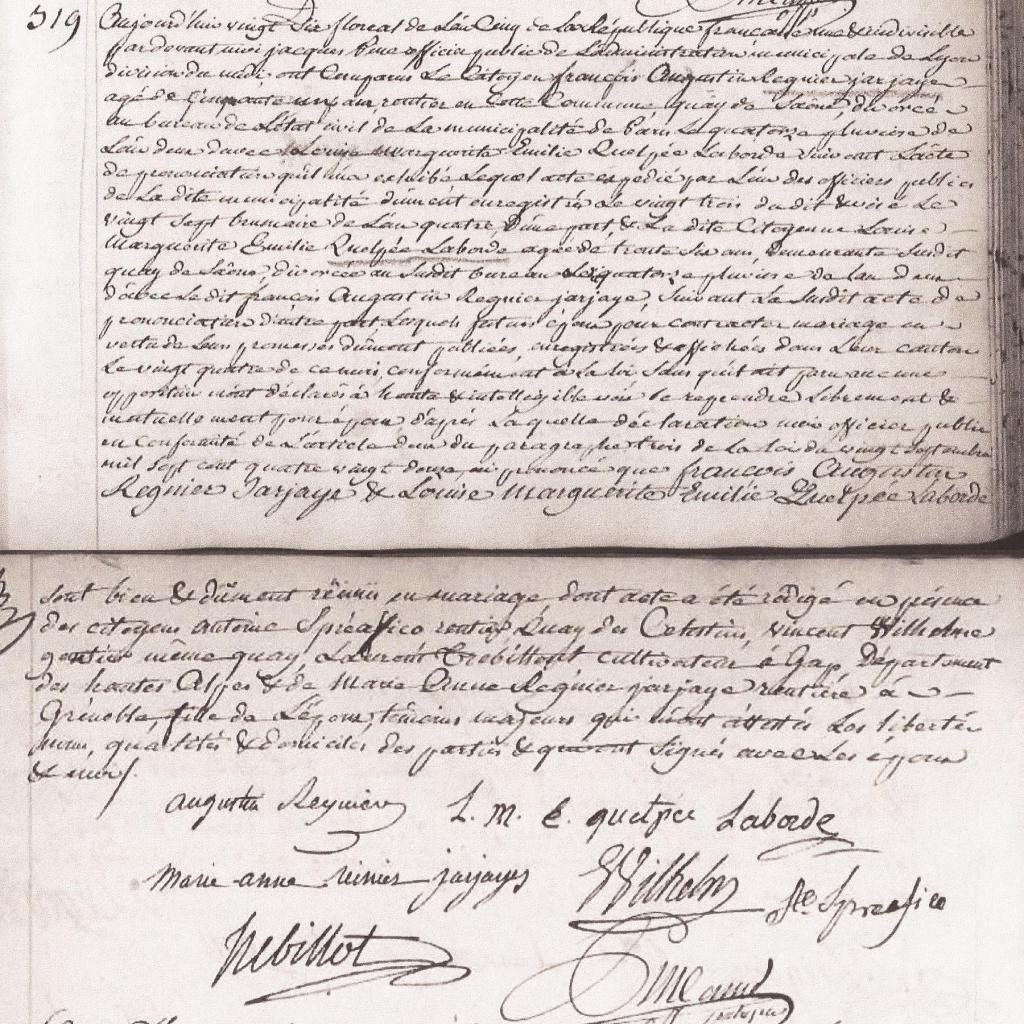 319
Aujourd'huy vingt Six floreal de L'an Cinq de La République française une & indivisible
pardevant moi jacques officier public de L'administration municipale de Lyon
division du midi, ont Comparus Le Citoyen françois Augustin Regnier jarjaye
agé de Cinquante un ans rentier en Cette Commune quay de Saône, divorcé
au bureau de L'état civil de La municipalité de Paris Le quatorze pluviose de
L'an deux d'avec Louise Marguerite Emilie Quelpée Laborde suivant L'acte
de prononciation qu'il m'a exhibé Lequel acte expédié par L'un des officiers publics
de La dite municipalité dûment enregistré Le vingt trois dudit & visé Le
vingt Sept brumaire de L'an quatre, D'une part, & La dite Citoyenne Louise
Marguerite Emilie Quelpée Laborde agée de trente Six ans, demeurante Susdit
quay de Saône, divorcée au Susdit bureau Le quatorze pluviose de L'an deux
d'avec Le dit françois Augustin Regnier jarjaye, Suivant La Susdit acte de
prononciation d'autre part Lesquels futurs époux pour contracter mariage en
vertu de Leurs promesses dûment publiées, enregistrées & affichées dans Leur canton
Le vingt quatre de ce mois, conformément à La loi Sans qu'il ait paru aucune
opposition m'ont déclarés à haute & intelligible voix Se reprendre Librement &
mutuellement pour époux d'après Laquelle déclaration moi officier public
en Conformité de L'article deux du paragraphe trois de La loi du vingt Septembre
mil Sept cent quatre vingt douze, ai prononcé que françois Augustin
Regnier Jarjaye & Louise Marguerite Emilie Quelpée Laborde
sont bien & dûment réunis en mariage dont acte a été rédigé en présence
des citoyens antoine Spréafico rentier Quay des Celestins, vincent Wilhelme
rentier meme quay, Laurent Trebillout cultivateur à Gap, Département
des hautes Alpes & de Marie Anne Regnier jarjaye rentière à
Grénoble fille de L'époux, témoins majeurs qui m'ont attestés Les libertés
noms, qualités & domiciles des parties & qui ont Signés avec Les époux
& moi
augustin Reynier L. M. E. quelpée Laborde
marie anne reinier jarjayes Wilhelm Spreafico
trebillot